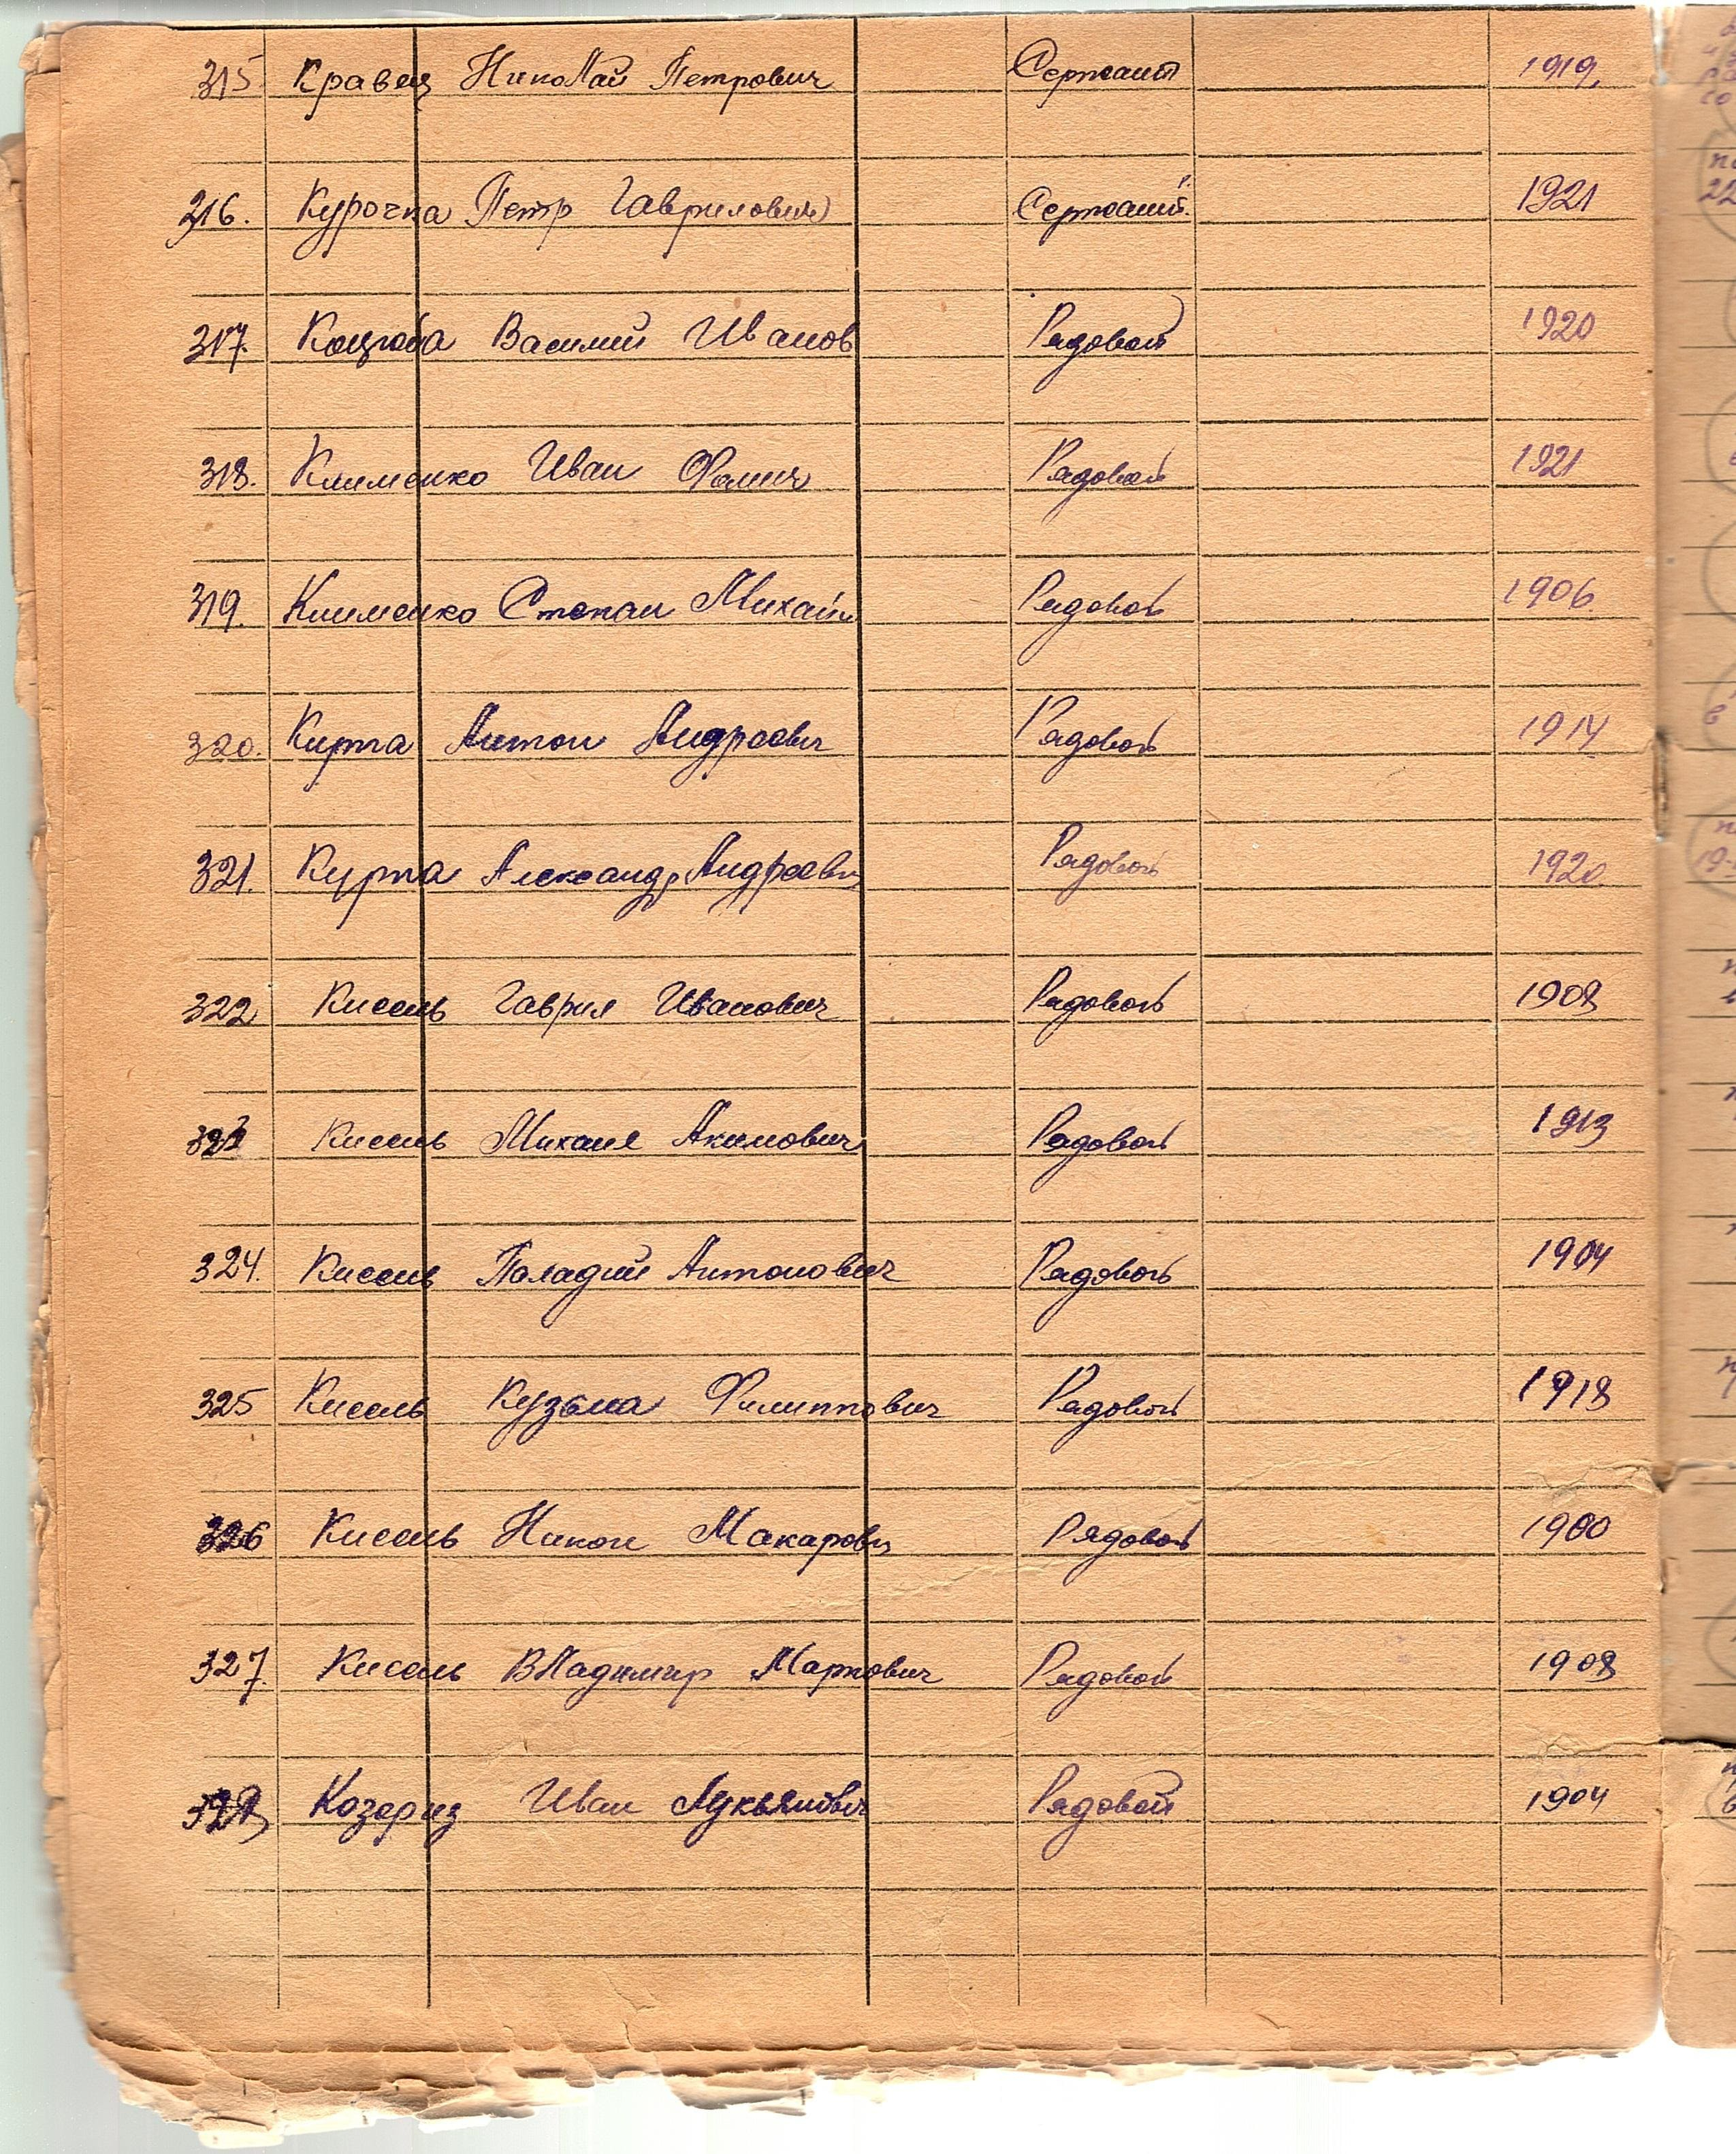 315 Кравец Николай Петрович Сержант 1919
316. Курочка Петр Гаврилович Сержант 1921
317. Коцюба Василий Иванов Рядовой 1920
318. Клименко Иван Фомич Рядовой 1921
319. Клименко Степан Михайл Рядовой 1906
320. Курта Антон Андреевич Рядовой 1914
321. Курта Александр Андреевич Рядовой 1920
322 Кисель Гаврил Иванович Рядовой 1908
323 Кисель Михаил Акимович Рядовой 1913
324. Кисель Паладий Антонович Рядовой 1904
325 Кисель Кузьма Филиппович Рядовой 1918
326 Кисель Никон Макарович Рядовой 1900
327. Кисель Владимир Маркович Рядовой 1908
328 Козориз Иван Лукьянович Рядовой 1904